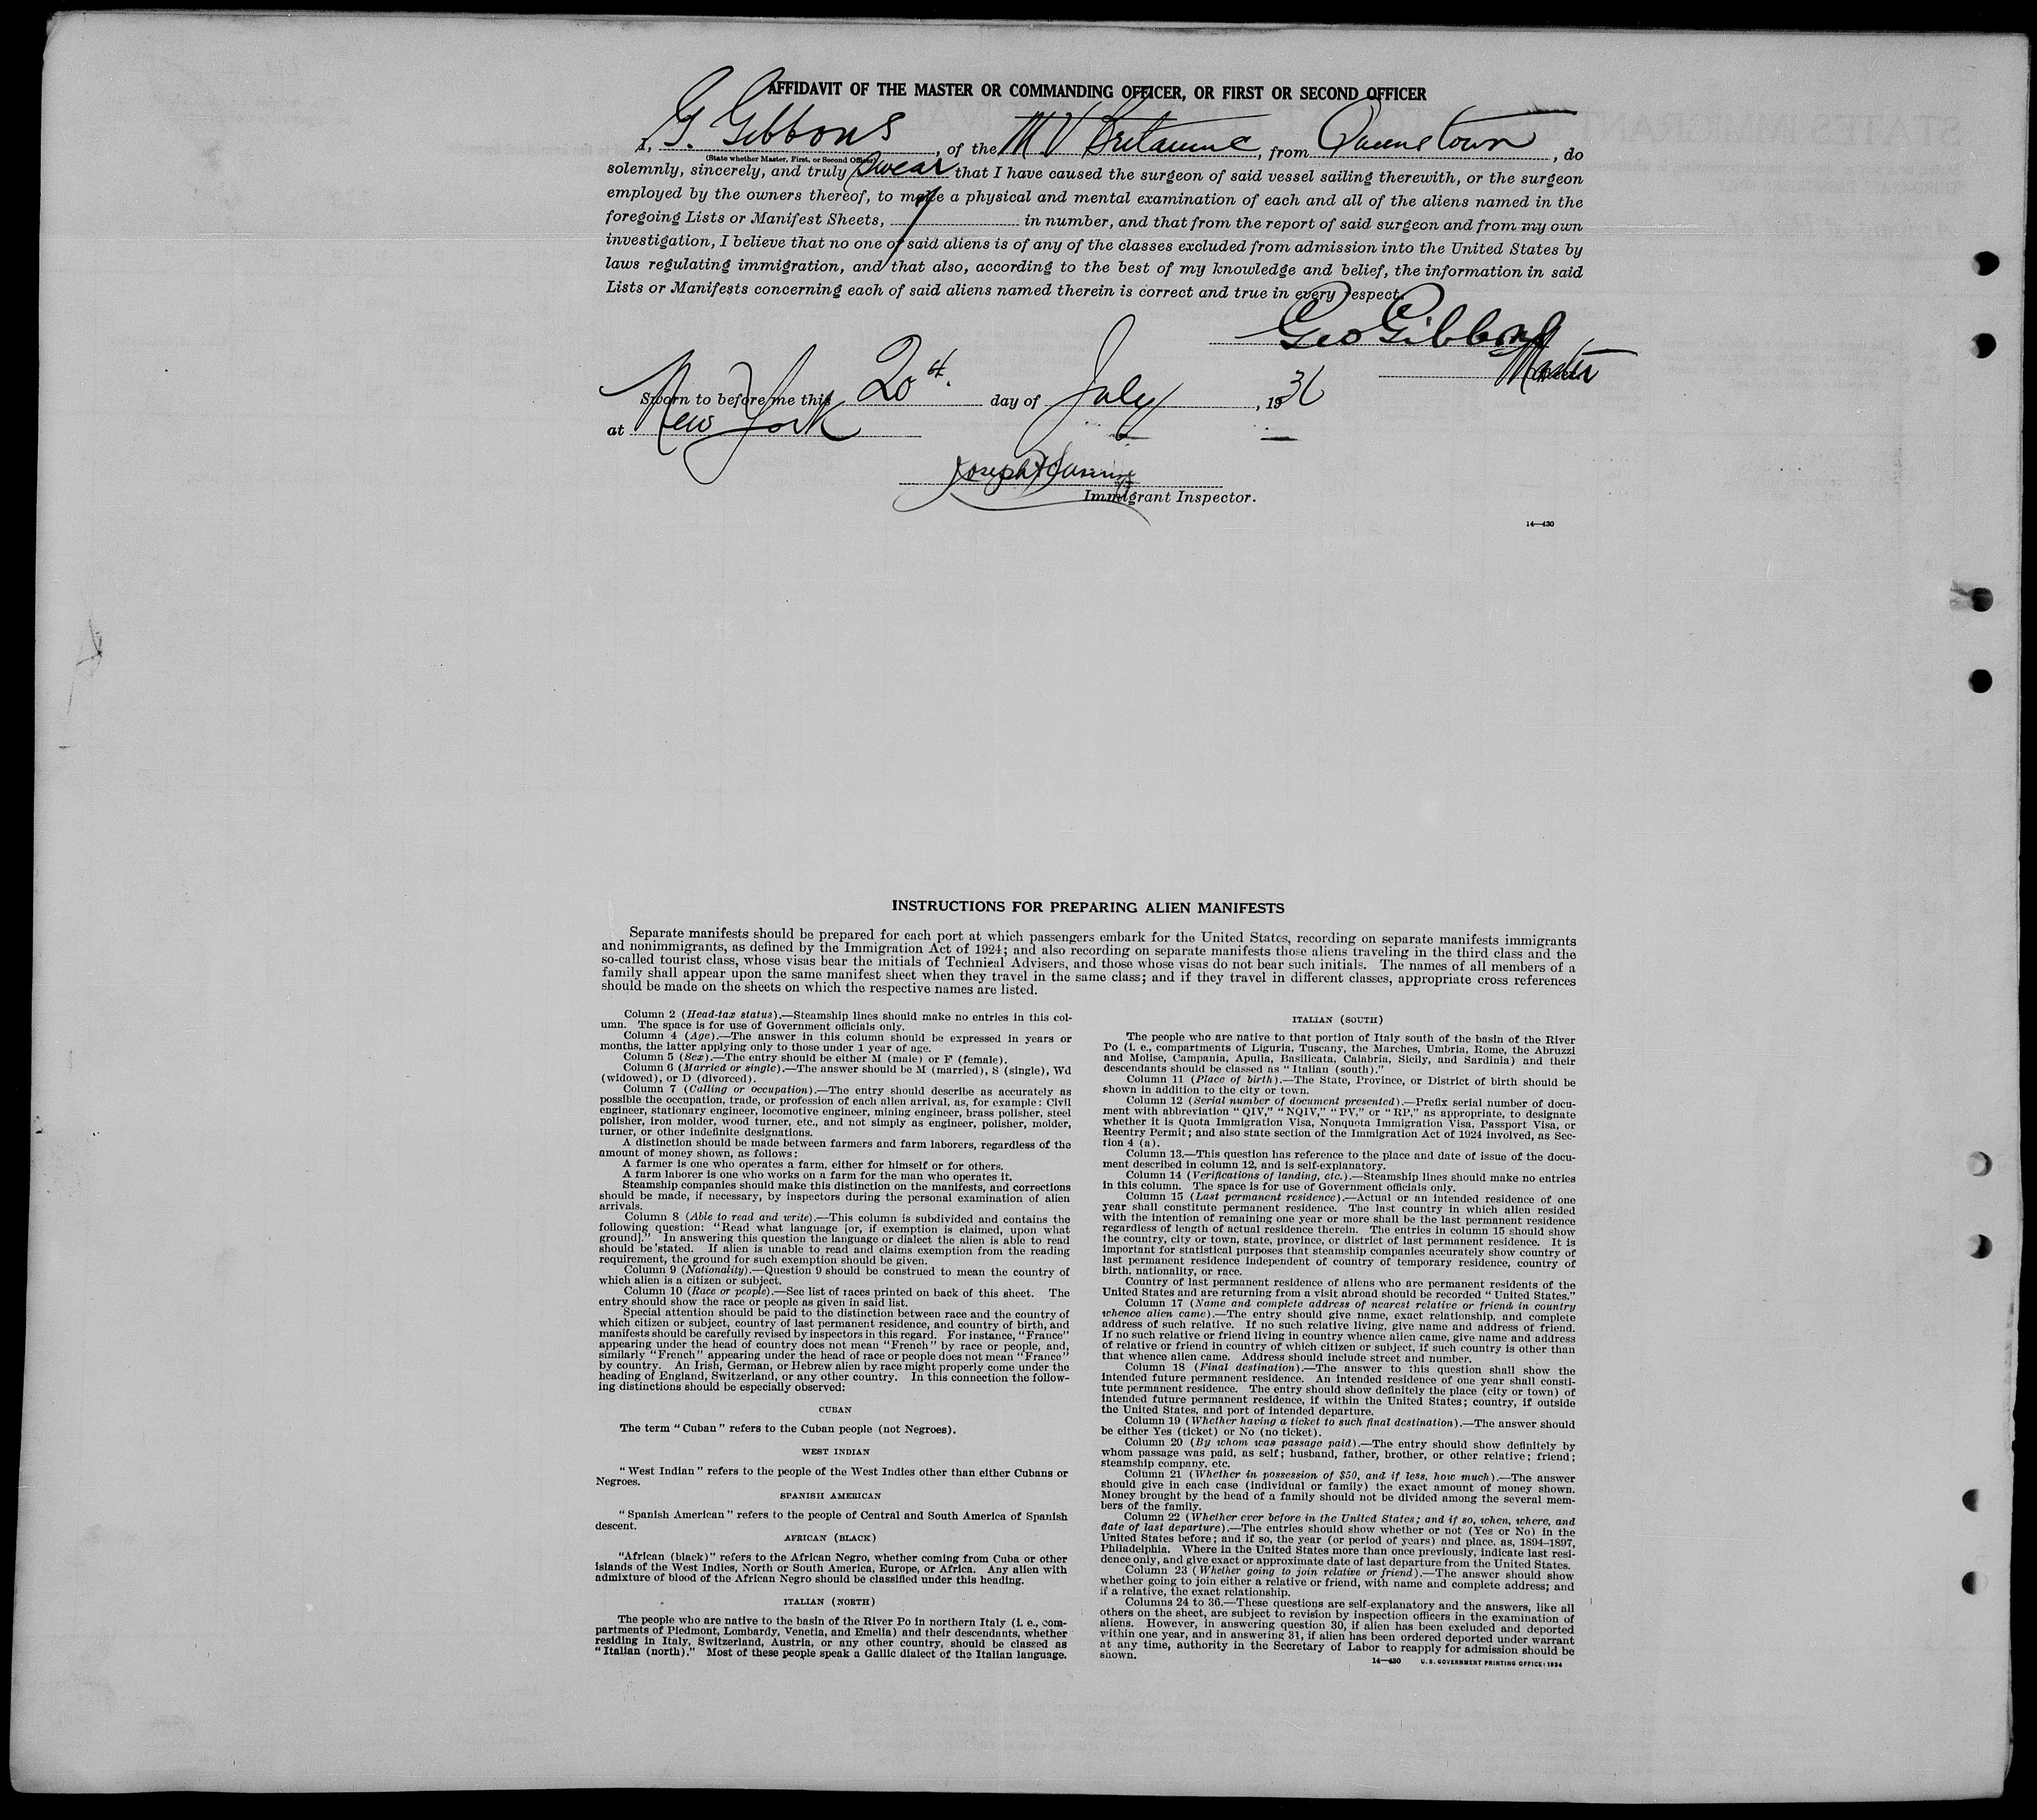 AFFIDAVIT OF THE MASTER OR COMMANDING OFFICER, OR FIRST OR SECOND OFFICER
I, G. Gibbons, of the M V Britannic, from Queenstown, do
(State whether Master, First, or Second Officer)
solemnly, sincerely, and truly swear that I have caused the surgeon of said vessel sailing therewith, or the surgeon
employed by the owners thereof, to make a physical and mental examination of each and all of the aliens named in the
foregoing Lists or Manifest Sheets, in number, and that from the report of said surgeon and from my own
investigation, I believe that no one of said aliens is of any of the classes excluded from admission into the United States by
laws regulating immigration, and that also, according to the best of my knowledge and belief, the information in said
Lists or Manifests concerning each of said aliens named therein is correct and true in every respect.
Geo Gibbons
Master
Sworn to before me this 20th. day of July, 1936
at New York
Joseph
Immigrant Inspector.
14—430
INSTRUCTIONS FOR PREPARING ALIEN MANIFESTS
Separate manifests should be prepared for each port at which passengers embark for the United States, recording on separate manifests immigrants
and nonimmigrants, as defined by the Immigration Act of 1924; and also recording on separate manifests those aliens traveling in the third class and the
so-called tourist class, whose visas bear the initials of Technical Advisers, and those whose visas do not bear such initials. The names of all members of a
family shall appear upon the same manifest sheet when they travel in the same class; and if they travel in different classes, appropriate cross references
should be made on the sheets on which the respective names are listed.
Column 2 (Head-tax status).—Steamship lines should make no entries in this col-
umn. The space is for use of Government officials only.
Column 4 (Age).—The answer in this column should be expressed in years or
months, the latter applying only to those under 1 year of age.
Column 5 (Sex).—The entry should be either M (male) or F (female).
Column 6 (Married or single).—The answer should be M (married), S (single), Wd
(widowed), or D (divorced).
Column 7 (Calling or occupation).—The entry should describe as accurately as
possible the occupation, trade, or profession of each alien arrival, as, for example: Civil
engineer, stationary engineer, locomotive engineer, mining engineer, brass polisher, steel
polisher, iron molder, wood turner, etc., and not simply as engineer, polisher, molder,
turner, or other indefinite designations.
A distinction should be made between farmers and farm laborers, regardless of the
amount of money shown, as follows:
A farmer is one who operates a farm, either for himself or for others.
A farm laborer is one who works on a farm for the man who operates it.
Steamship companies should make this distinction on the manifests, and corrections
should be made, if necessary, by inspectors during the personal examination of alien
arrivals.
Column 8 (Able to read and write).—This column is subdivided and contains the
following question: "Read what language [or, if exemption is claimed, upon what
ground]." In answering this question the language or dialect the alien is able to read
should be stated. If alien is unable to read and claims exemption from the reading
requirement, the ground for such exemption should be given.
Column 9 (Nationality).—Question 9 should be construed to mean the country of
which alien is a citizen or subject.
Column 10 (Race or people).—See list of races printed on back of this sheet. The
entry should show the race or people as given in said list.
Special attention should be paid to the distinction between race and the country of
which citizen or subject, country of last permanent residence, and country of birth, and
manifests should be carefully revised by inspectors in this regard. For instance, "France"
appearing under the head of country does not mean "French" by race or people, and,
similarly "French" appearing under the head of race or people does not mean "France"
by country. An Irish, German, or Hebrew alien by race might properly come under the
heading of England, Switzerland, or any other country. In this connection the follow-
ing distinctions should be especially observed:
CUBAN
The term "Cuban" refers to the Cuban people (not Negroes).
WEST INDIAN
"West Indian" refers to the people of the West Indies other than either Cubans or
Negroes.
SPANISH AMERICAN
"Spanish American" refers to the people of Central and South America of Spanish
descent.
AFRICAN (BLACK)
"African (black)" refers to the African Negro, whether coming from Cuba or other
islands of the West Indies, North or South America, Europe, or Africa. Any alien with
admixture of blood of the African Negro should be classified under this heading.
ITALIAN (NORTH)
The people who are native to the basin of the River Po in northern Italy (i. e., com-
partments of Piedmont, Lombardy, Venetia, and Emelia) and their descendants, whether
residing in Italy, Switzerland, Austria, or any other country, should be classed as
"Italian (north)." Most of these people speak a Gallic dialect of the Italian language.
ITALIAN (SOUTH)
The people who are native to that portion of Italy south of the basin of the River
Po (i. e., compartments of Liguria, Tuscany, the Marches, Umbria, Rome, the Abruzzi
and Molise, Campania, Apulia, Basilicata, Calabria, Sicily, and Sardinia) and their
descendants should be classed as "Italian (south)."
Column 11 (Place of birth).—The State, Province, or District of birth should be
shown in addition to the city or town.
Column 12 (Serial number of document presented).—Prefix serial number of docu-
ment with abbreviation "QIV," "NQIV," "PV," or "RP," as appropriate, to designate
whether it is Quota Immigration Visa, Nonquota Immigration Visa, Passport Visa, or
Reentry Permit; and also state section of the Immigration Act of 1924 involved, as Sec-
tion 4 (a).
Column 13.—This question has reference to the place and date of issue of the docu-
ment described in column 12, and is self-explanatory.
Column 14 (Verifications of landing, etc.).—Steamship lines should make no entries
in this column. The space is for use of Government officials only.
Column 15 (Last permanent residence).—Actual or an intended residence of one
year shall constitute permanent residence. The last country in which alien resided
with the intention of remaining one year or more shall be the last permanent residence
regardless of length of actual residence therein. The entries in column 15 should show
the country, city or town, state, province, or district of last permanent residence. It is
important for statistical purposes that steamship companies accurately show country of
last permanent residence independent of country of temporary residence, country of
birth, nationality, or race.
Country of last permanent residence of aliens who are permanent residents of the
United States and are returning from a visit abroad should be recorded "United States."
Column 17 (Name and complete address of nearest relative or friend in country
whence alien came).—The entry should give name, exact relationship, and complete
address of such relative. If no such relative living, give name and address of friend.
If no such relative or friend living in country whence alien came, give name and address
of relative or friend in country of which citizen or subject, if such country is other than
that whence alien came. Address should include street and number.
Column 18 (Final destination).—The answer to this question shall show the
intended future permanent residence. An intended residence of one year shall consti-
tute permanent residence. The entry should show definitely the place (city or town) of
intended future permanent residence, if within the United States; country, if outside
the United States, and port of intended departure.
Column 19 (Whether having a ticket to such final destination).—The answer should
be either Yes (ticket) or No (no ticket).
Column 20 (By whom was passage paid).—The entry should show definitely by
whom passage was paid, as self; husband, father, brother, or other relative; friend;
steamship company, etc.
Column 21 (Whether in possession of $50, and if less, how much).—The answer
should give in each case (individual or family) the exact amount of money shown.
Money brought by the head of a family should not be divided among the several mem-
bers of the family.
Column 22 (Whether ever before in the United States; and if so, when, where, and
date of last departure).—The entries should show whether or not (Yes or No) in the
United States before; and if so, the year (or period of years) and place, as, 1894–1897,
Philadelphia. Where in the United States more than once previously, indicate last resi-
dence only, and give exact or approximate date of last departure from the United States.
Column 23 (Whether going to join relative or friend).—The answer should show
whether going to join either a relative or friend, with name and complete address; and
if a relative, the exact relationship.
Columns 24 to 36.—These questions are self-explanatory and the answers, like all
others on the sheet, are subject to revision by inspection officers in the examination of
aliens. However, in answering question 30, if alien has been excluded and deported
within one year, and in answering 31, if alien has been ordered deported under warrant
at any time, authority in the Secretary of Labor to reapply for admission should be
shown.
14—430 U. S. GOVERNMENT PRINTING OFFICE: 1934